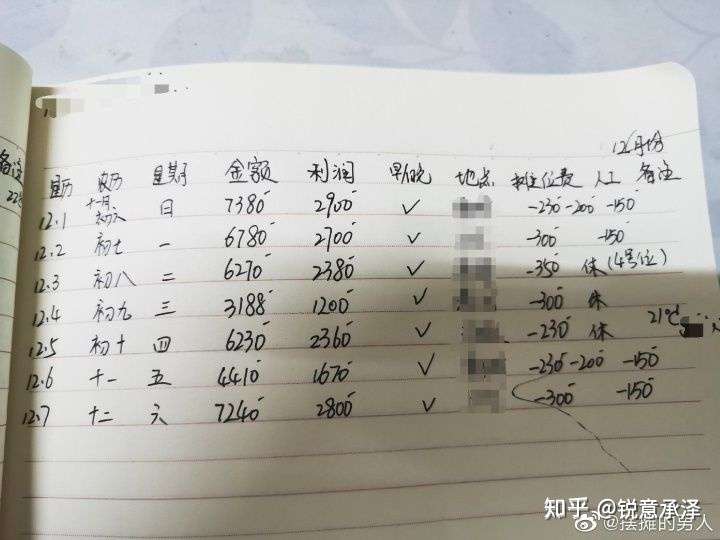 12月份
备注
22
星历 农历 星期 金额 利润 早/晚 地点 摊位费 人工 备注
12.1 十一月初六 日 7380 2900 ✓ -230 -200 -150
12.2 初七 一 6780 2700 ✓ -300 -150
12.3 初八 二 6270 2380 ✓ -350 休 (4号位)
12.4 初九 三 3188 1200 ✓ -300 休
12.5 初十 四 6230 2360 ✓ -230 休 21℃
12.6 十一 五 4410 1670 ✓ -230 -200 -150
12.7 十二 六 7240 2800 ✓ -300 -150
知乎 @锐意承泽
@摆摊的男人